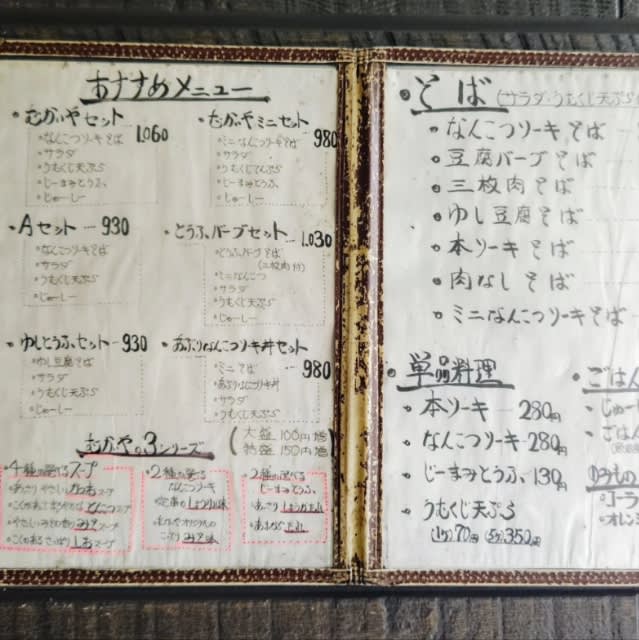 おすすめメニュー
・むかいやセット 1,060
・なんこつソーキそば
・サラダ
・うむくじ天ぷら
・じーまみとうふ
・じゅーしー
・むかいやミニセット 980
・ミニなんこつソーキそば
・サラダ
・うむくじてんぷら
・じーまみとうふ
・じゅーしー
・Aセット … 930
・なんこつソーキそば
・サラダ
・うむくじ天ぷら
・じゅーしー
・とうふバーブセット … 1,030
・とうふバーブそば
(三枚肉付)
・ミニなんこつ
・サラダ
・うむくじ天ぷら
・じゅーしー
・ゆしとうふセット … 930
・ゆし豆腐そば
・サラダ
・うむくじ天ぷら
・じゅーしー
・あぶりなんこつソーキ丼セット 980
・ミニそば
・サラダ
・うむくじ天ぷら
(大盛 100円増
特盛 150円増)
むかいやの3シリーズ
・4種の選べるスープ
・2種の選べる
なんこつソーキ
・定番のしょうゆ味
みそ味
・2種の選べる
じーまみとうふ
・そば (サラダ・うむくじ天ぷら
・なんこつソーキそば
・豆腐バーブそば
・三枚肉そば
・ゆし豆腐そば
・本ソーキそば
・肉なしそば
・ミニなんこつソーキそば
・単品料理
・本ソーキ … 280円
・なんこつソーキ … 280円
・じーまみとうふ … 130円
・うむくじ天ぷら
(1ケ) 70円 (5ケ) 350円
・ごはん
・じゅー
・ごはん
・のみもの
・コーラ
・オレン